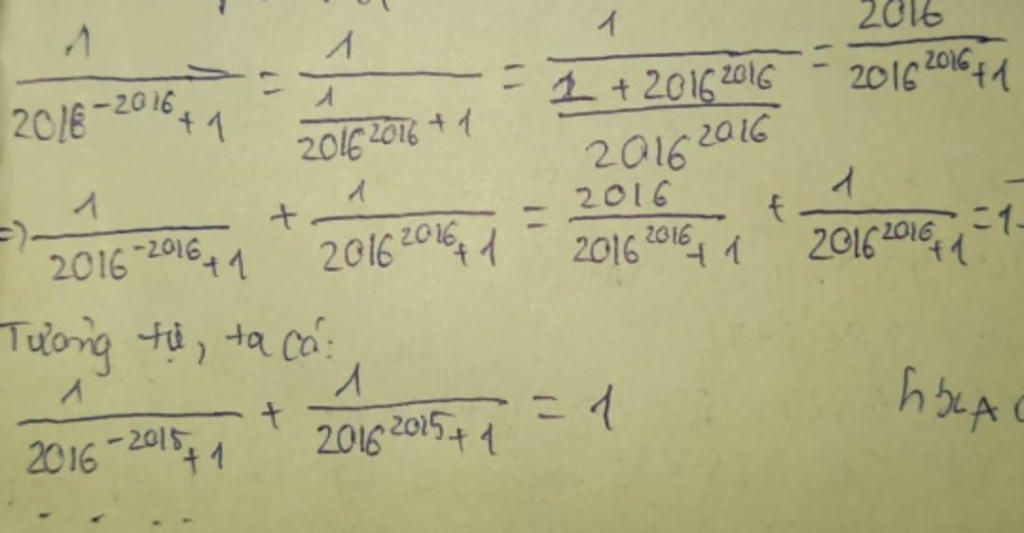 1/(2016^-2016 + 1) = 1/(1/2016^2016 + 1) = 1/((1 + 2016^2016)/2016^2016) = 2016/(2016^2016 + 1)
=> 1/(2016^-2016 + 1) + 1/(2016^2016 + 1) = 2016/(2016^2016 + 1) + 1/(2016^2016 + 1) = 1
Tương tự, ta có:
1/(2016^-2015 + 1) + 1/(2016^2015 + 1) = 1
....